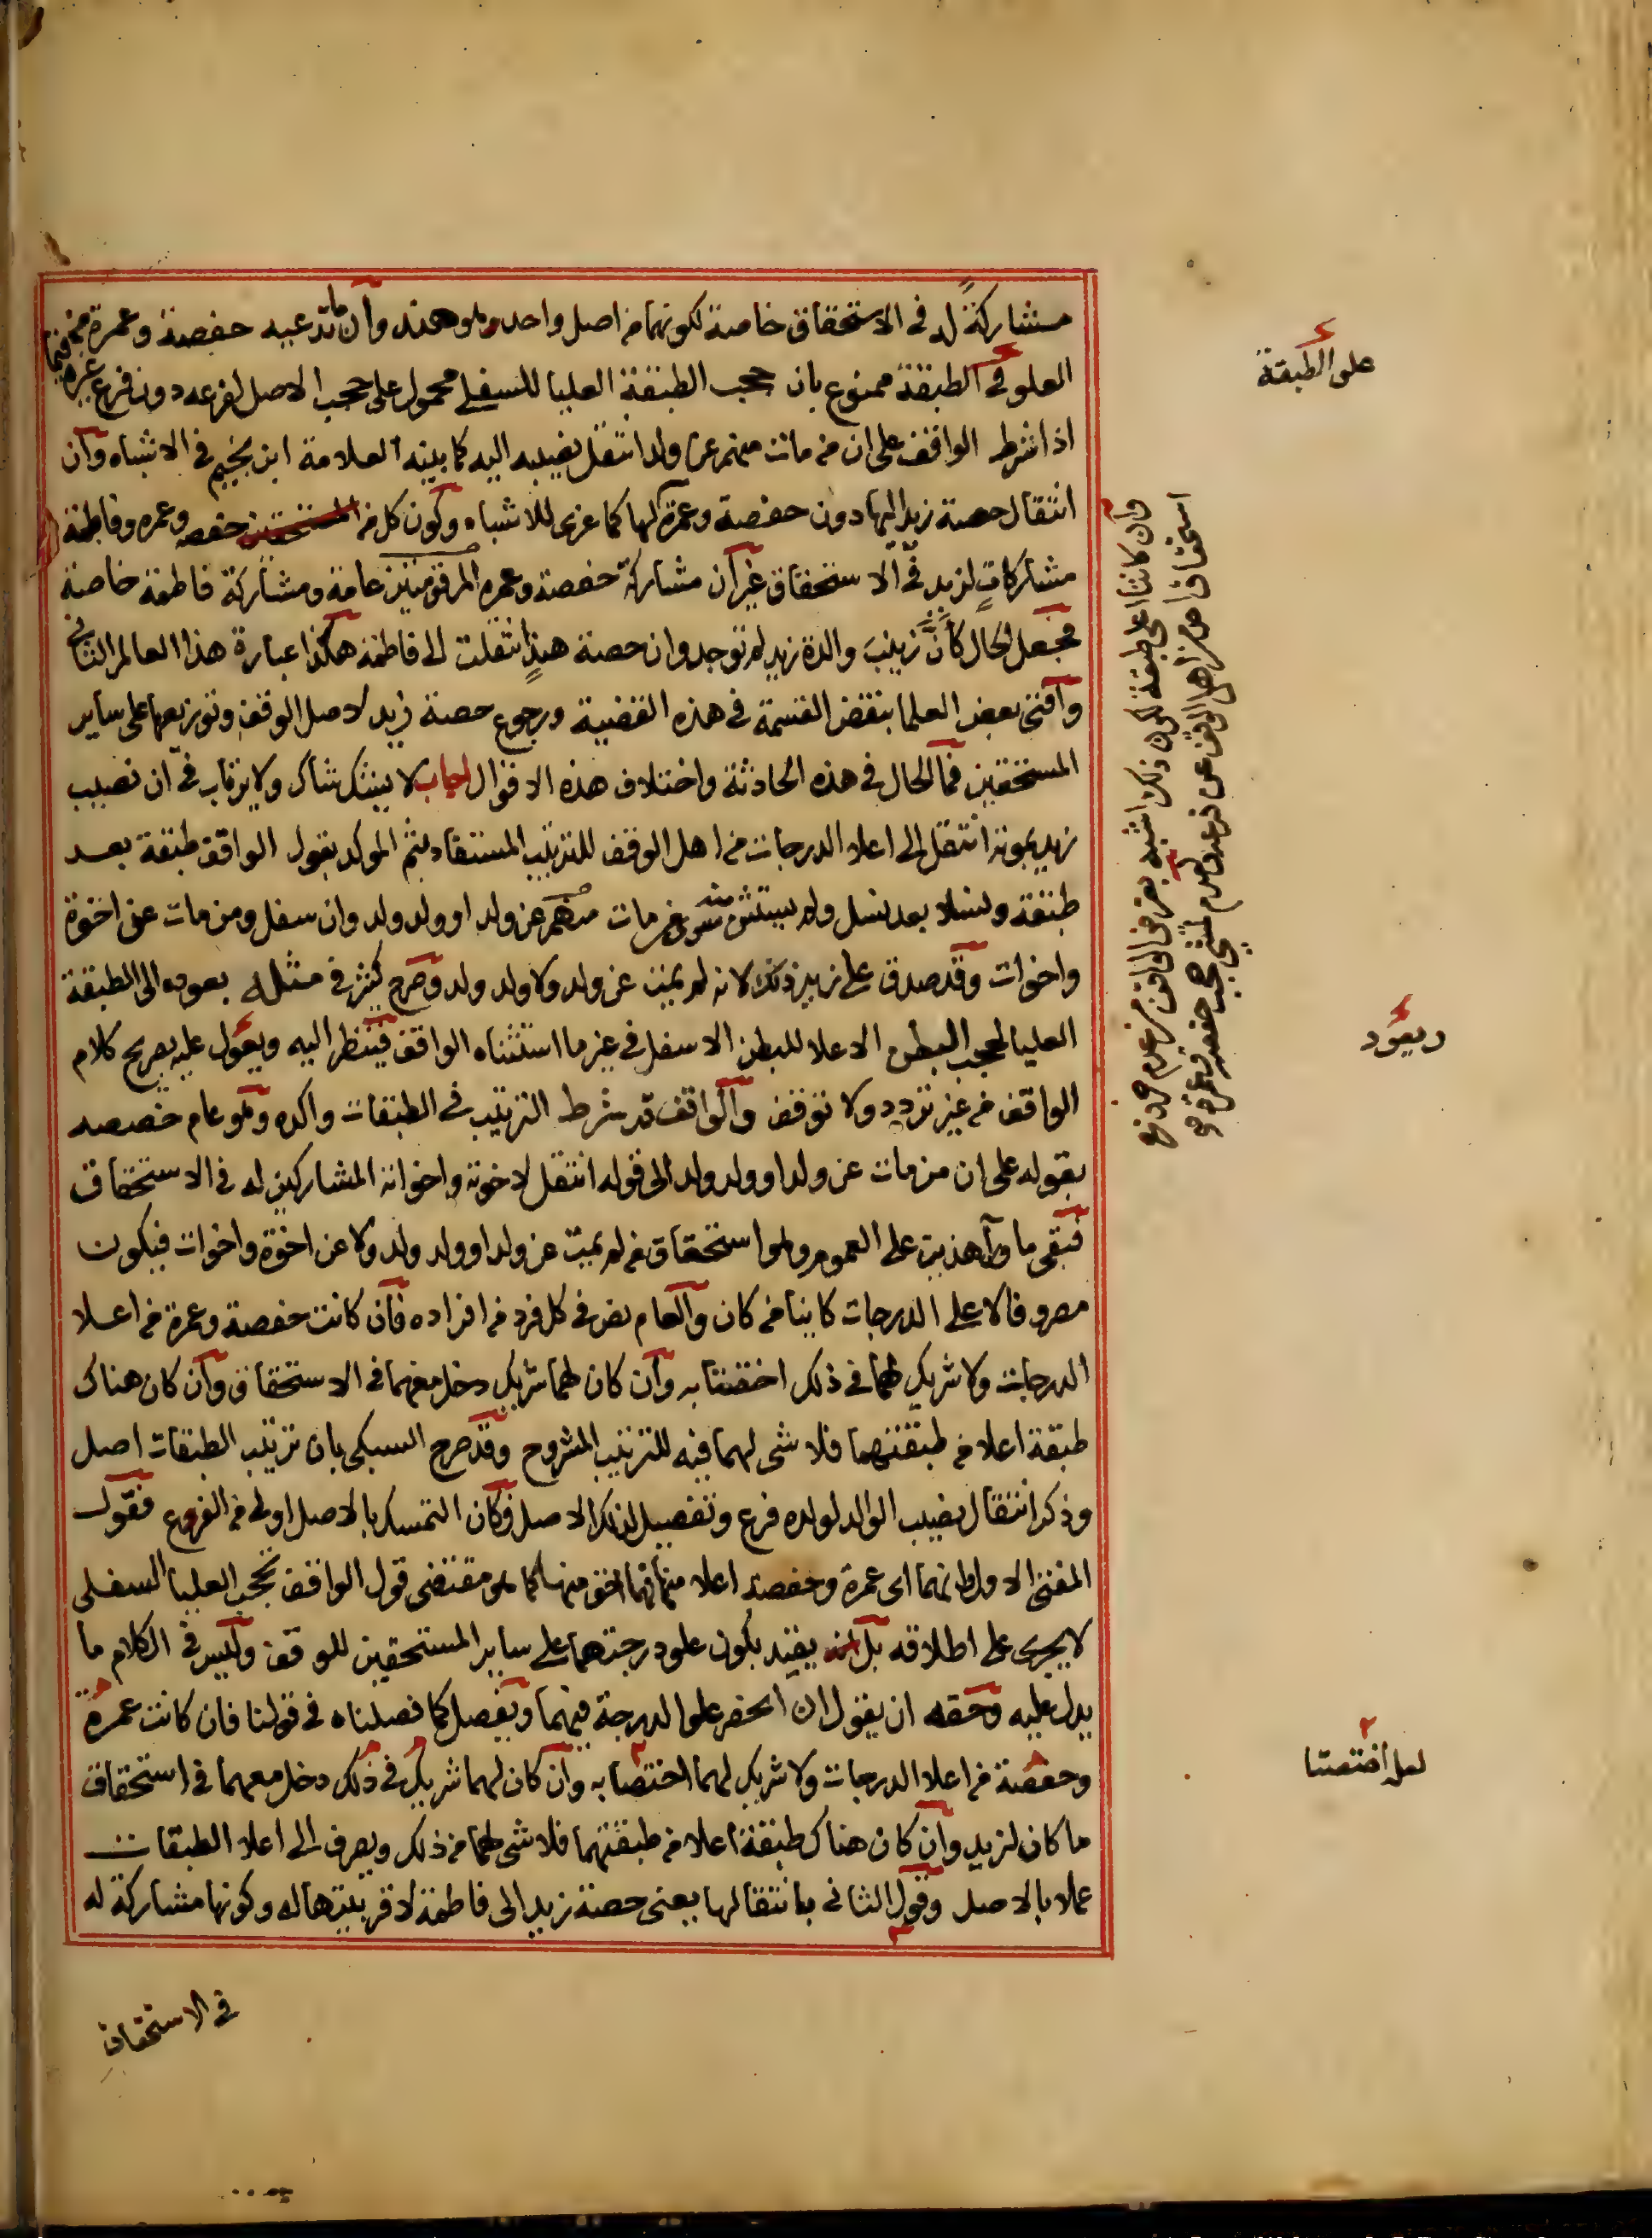 مشاركةً له في الاستحقاق خاصة لكونهما من اصل واحد وهو هند وأن ما تدعيه حفصة وعمرة من
العلو في الطبقة ممنوع بان حجب الطبقة العليا للسفلى محمول على حجب الاصل لفرعه دون فرع غيره فيما
اذا شرط الواقف على ان من مات منهم عن ولد انتقل نصيبه اليه كما بينه العلامة ابن نجيم في الاشباه وأن
انتقال حصة زيد اليها دون حفصة وعمرة لها كما عزى للاشباه وكون كل من حفصه وعمره وفاطمة
مشاركاتٍ لزيد في الاستحقاق غير أن مشاركة حفصة وعمره المرقومتين عامة ومشاركة فاطمة خاصة
فجعل الحال كأنَّ زينبَ والدة زيد لم توجد وان حصة هندٍ انتقلت الى فاطمة هكذا عبارة هذا العالم الثاني
وأفتى بعض العلما بنقض القسمة في هذه القضية ورجوع حصة زيد لاصل الوقف وتوزيعها على ساير
المستحقين فما الحال في هذه الحادثة واختلاف هذه الاقوال اجاب لا يشك شاك ولا يرتاب في ان نصيب
زيد بموته انتقل الى اعلا الدرجات من اهل الوقف للترتيب المستفاد بثم الموكد بقول الواقف طبقة بعد
طبقة ونسلا بعد نسل ولم يستثن منه سوى من مات منهم عن ولد او ولد ولد وان سفل ومن مات عن اخوة
واخوات وقد صدق على زيد ذلك لانه لم يمت عن ولد ولا ولد ولد وصرح كثير في مثله بعوده الى الطبقة
العليا لحجب البطن الاعلا للبطن الاسفل في غير ما استثناه الواقف فينظر اليه ويعول عليه بصريح كلام
الواقف من غير تردد ولا توقف والواقف قد شرط الترتيب في الطبقات واكده وهو عام خصصه
بقوله على ان من مات عن ولد او ولد ولد الى قوله انتقل لاخوته واخواته المشاركين له في الاستحقاق
فبقى ما وراء هذين على العموم وهو استحقاق من لم يمت عن ولد او ولد ولد ولا عن اخوة واخوات فيكون
مصروفا لاعلى الدرجات كاينا من كان والعام نص في كل فرد من افراده فأن كانت حفصة وعمرة من اعلا
الدرجات ولا شريك لهما في ذلك اختصتا به وأن كان لهما شريك دخل معهما في الاستحقاق وأن كان هناك
طبقة اعلا من طبقتهما فلا شى لهما فيه للترتيب المشروح وقد صرح السبكى بان ترتيب الطبقات اصل
وذكر انتقال نصيب الوالد لولده فرع وتفصيل لذلك الاصل فكان التمسك بالاصل اولى من الفروع فقول
المفتى الاول انهما اى عمرة وحفصة اعلا منها انهما احق منها كما هو مقتضى قول الواقف تحجب العليا السفلى
لا يجرى على اطلاقه بل يقيد بكون علو درجتهما على ساير المستحقين للوقف وليس في الكلام ما
يدل عليه وحقه ان يقول ان انحصر علو الدرجة فيهما ويفصل كما فصلناه في قولنا فان كانت عمرة
وحفصة من اعلا الدرجات ولا شريك لهما اختصا به وأن كان لهما شريك في ذلك دخل معهما في استحقاق
ما كان لزيد وان كان هناك طبقة اعلا من طبقتهما فلا شى لهما من ذلك ويصرف الى اعلا الطبقات
عملا بالاصل وقول الثانى بانتقالها يعنى حصة زيد الى فاطمة لاقربيتها له وكونها مشاركة له
في الاستحقاق
على الطبقة
وأن كانتا اعلى طبقة لكون ذلك اشبه بغرض الواقف من عدم خروج
استحقاق احد من اهل الوقف عن فرعه وعدم شي حجب حفصة وعمرة
ويعود
لعل اختصتا